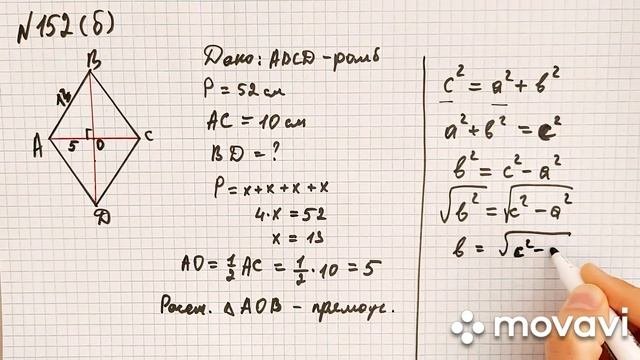 №152(б)
B
13
A
5
O
C
D
Дано: ABCD - ромб
P = 52 см
AC = 10 см
BD = ?
P = x + x + x + x
4·x = 52
x = 13
AO = 1/2 AC = 1/2 · 10 = 5
Рассм. △ AOB - прямоуг.
c² = a² + b²
a² + b² = c²
b² = c² - a²
√b² = √c² - a²
b = √c² - a
movavi